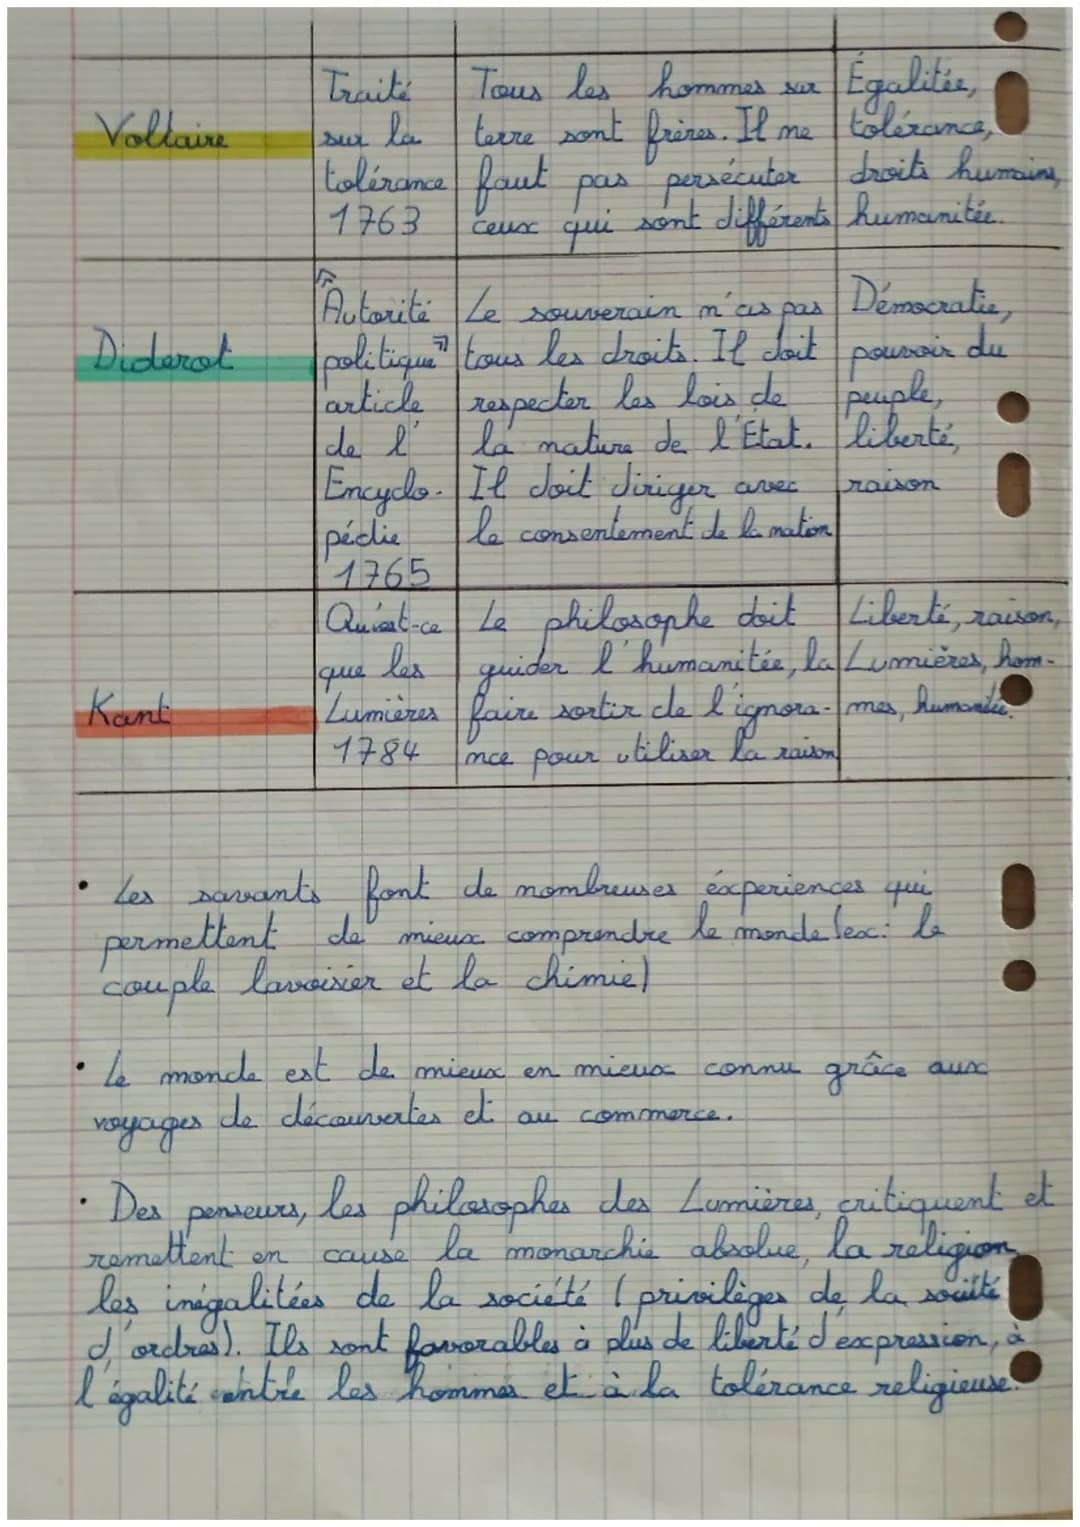 Voltaire
Traité
sur la
tolérance
1763
Tous les hommes sur
terre sont frères. Il ne
faut pas persécuter
ceux qui sont différents
Égalitée,
tolérance,
droits humains,
humanitée.
Diderot
"Autorité
politique"
article
de l'
Encyclo-
pédie
1765
Le souverain n'as pas
tous les droits. Il doit
respecter les lois de
la nature de l'État.
Il doit diriger avec
le consentement de la nation
Démocratie,
pouvoir du
peuple,
liberté,
raison
Kant
Qu'est-ce
que les
Lumières
1784
Le philosophe doit
guider l'humanitée, la
faire sortir de l'ignora-
nce pour utiliser la raison
Liberté, raison,
Lumières, hom-
mes, humanitée.
• Les savants font de nombreuses éxperiences qui
permettent de mieux comprendre le monde (ex: le
couple lavoisier et la chimie)
• Le monde est de mieux en mieux connu grâce aux
voyages de découvertes et au commerce.
• Des penseurs, les philosophes des Lumières, critiquent et
remettent en cause la monarchie absolue, la religion,
les inégalitées de la société (privilèges de la société
d'ordres). Ils sont favorables à plus de liberté d'expression, à
l'égalité entre les hommes et à la tolérance religieuse.